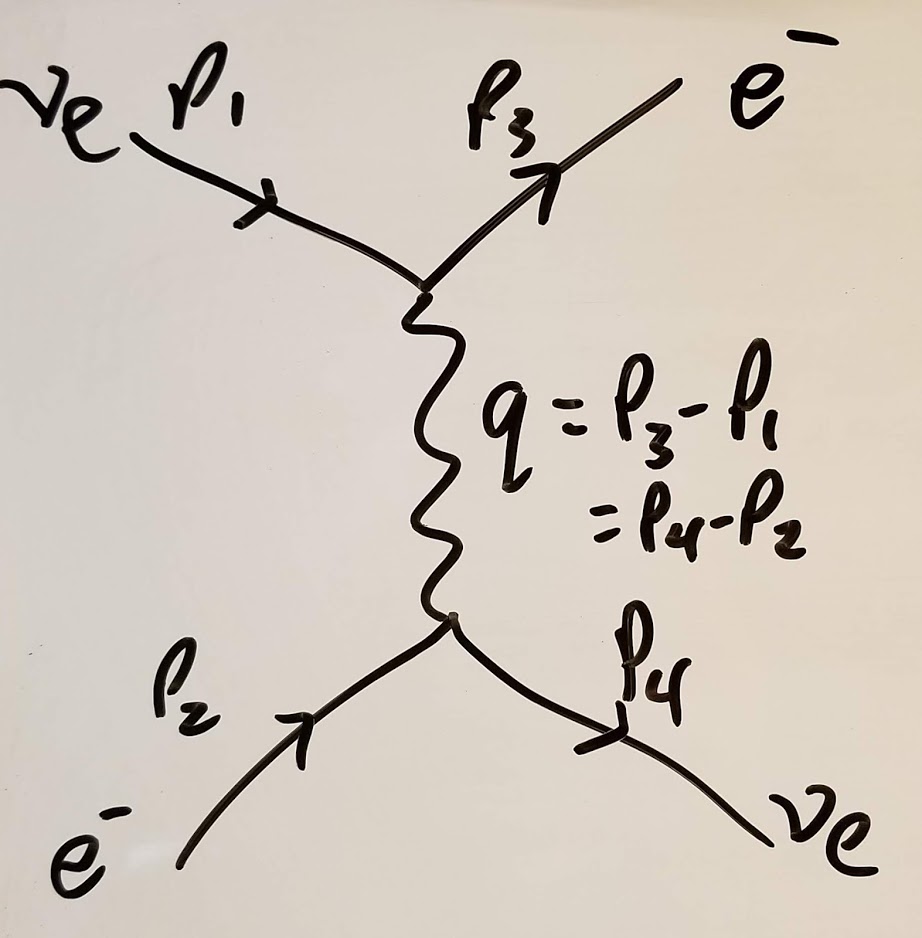 νe P₁ P₃ e⁻
q = P₃ - P₁
= P₄ - P₂
P₂ P₄
e⁻ νe